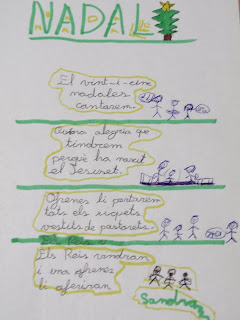 NADAL
El vint-i-cinc
nadales
cantarem.
alegria que
tindrem
perquè ha nascut
el Jesuset.
Ofrenes li portarem
tots els xiquets
vestits de pastorets.
Els Reis vendran
i una ofrenes
li oferiran
Sandra